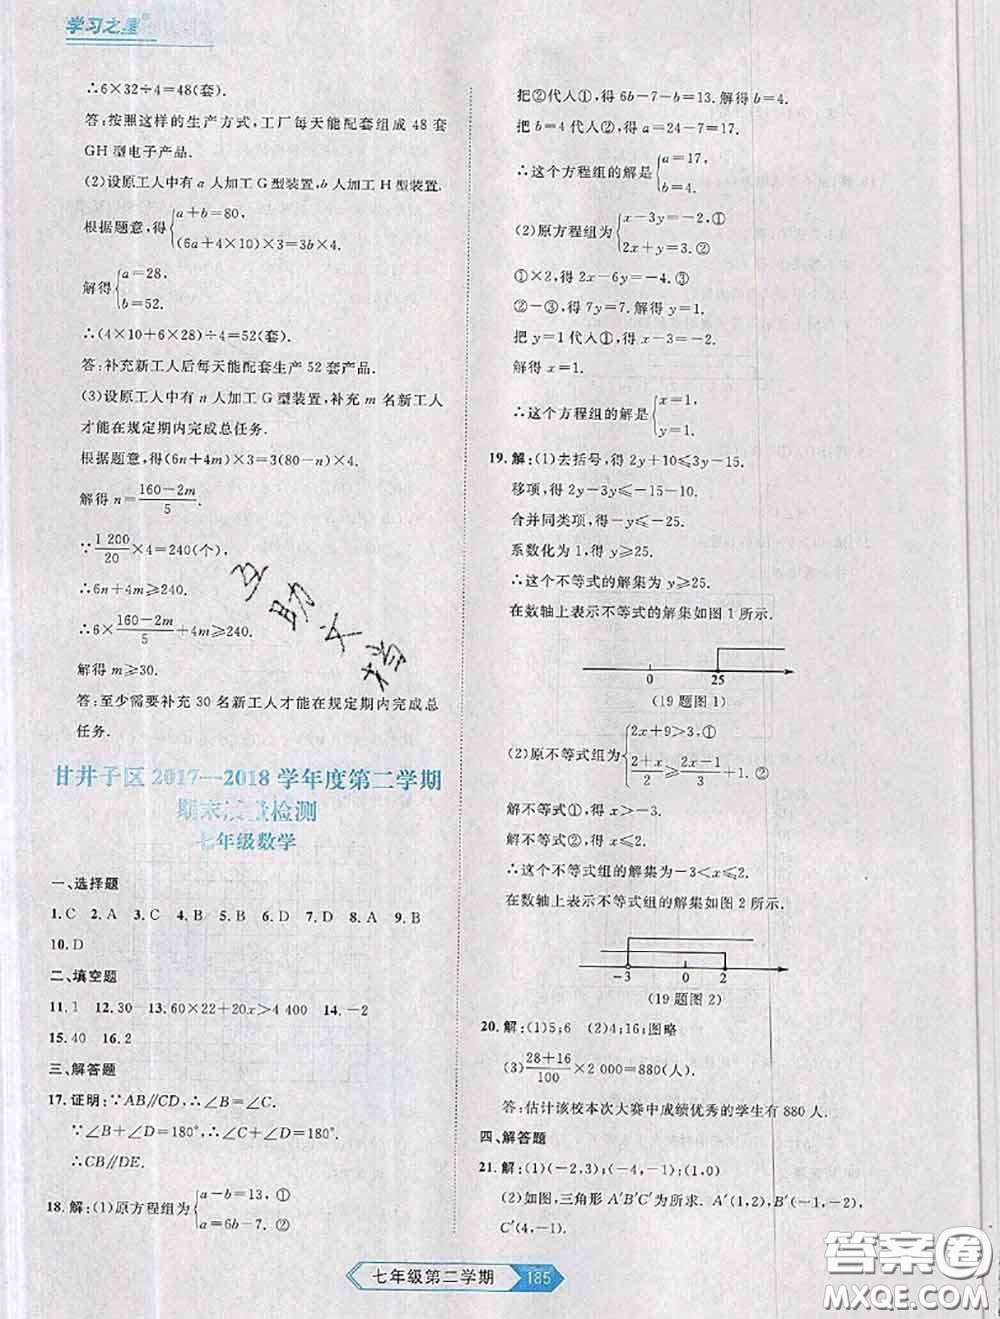 学习之星
∴6×32÷4=48(套).
答:按照这样的生产方式,工厂每天能配套组成 48 套
GH 型电子产品.
(2)设原工人中有 a 人加工 G 型装置,b 人加工 H 型装置.
根据题意,得{a+b=80,
(6a+4×10)×3=3b×4.
解得{a=28,
b=52.
∴(4×10+6×28)÷4=52(套).
答:补充新工人后每天能配套生产 52 套产品.
(3)设原工人中有 n 人加工 G 型装置,补充 m 名新工人
才能在规定期内完成总任务.
根据题意,得(6n+4m)×3=3(80-n)×4.
解得 n=(160-2m)/5.
∵1 200/20×4=240(个),
∴6n+4m⩾240.
∴6×(160-2m)/5+4m⩾240.
解得 m⩾30.
答:至少需要补充 30 名新工人才能在规定期内完成总
任务.
甘井子区 2017—2018 学年度第二学期
期末质量检测
七年级数学
一、选择题
1.C 2.A 3.C 4.B 5.B 6.D 7.D 8.A 9.B
10.D
二、填空题
11.1 12.30 13.60×22+20x>4 400 14.-2
15.40 16.2
三、解答题
17.证明:∵AB//CD,∴∠B=∠C.
∵∠B+∠D=180°,∴∠C+∠D=180°,
∴CB//DE.
18.解:(1)原方程组为{a-b=13, ①
a=6b-7. ②
把②代人①,得 6b-7-b=13. 解得 b=4.
把 b=4 代人②,得 a=24-7=17.
∴这个方程组的解是{a=17,
b=4.
(2)原方程组为{x-3y=-2,①
2x+y=3. ②
①×2,得 2x-6y=-4. ③
②-③,得 7y=7. 解得 y=1.
把 y=1 代人①,得 x-3=-2.
解得 x=1.
∴这个方程组的解是{x=1,
y=1.
19.解:(1)去括号,得 2y+10⩽3y-15.
移项,得 2y-3y⩽-15-10.
合并同类项,得-y⩽-25.
系数化为 1,得 y⩾25.
∴这个不等式的解集为 y⩾25.
在数轴上表示不等式的解集如图 1 所示.
0 25
(19 题图 1)
(2)原不等式组为{2x+9>3,①
(2+x)/2⩾(2x-1)/3+1. ②
解不等式①,得 x>-3.
解不等式②,得 x⩽2.
∴这个不等式组的解集为-3<x⩽2.
在数轴上表示不等式组的解集如图 2 所示.
-3 0 2
(19 题图 2)
20.解:(1)5;6 (2)4;16;图略
(3)(28+16)/100×2 000=880(人).
答:估计该校本次大赛中成绩优秀的学生有 880 人.
四、解答题
21.解:(1)(-2,3);(-4,-1);(1,0)
(2)如图,三角形 A′B′C′为所求. A′(1,2),B′(-1,-2),
C′(4,-1).
互助文档
七年级第二学期 185
答案卷
MXQE.COM